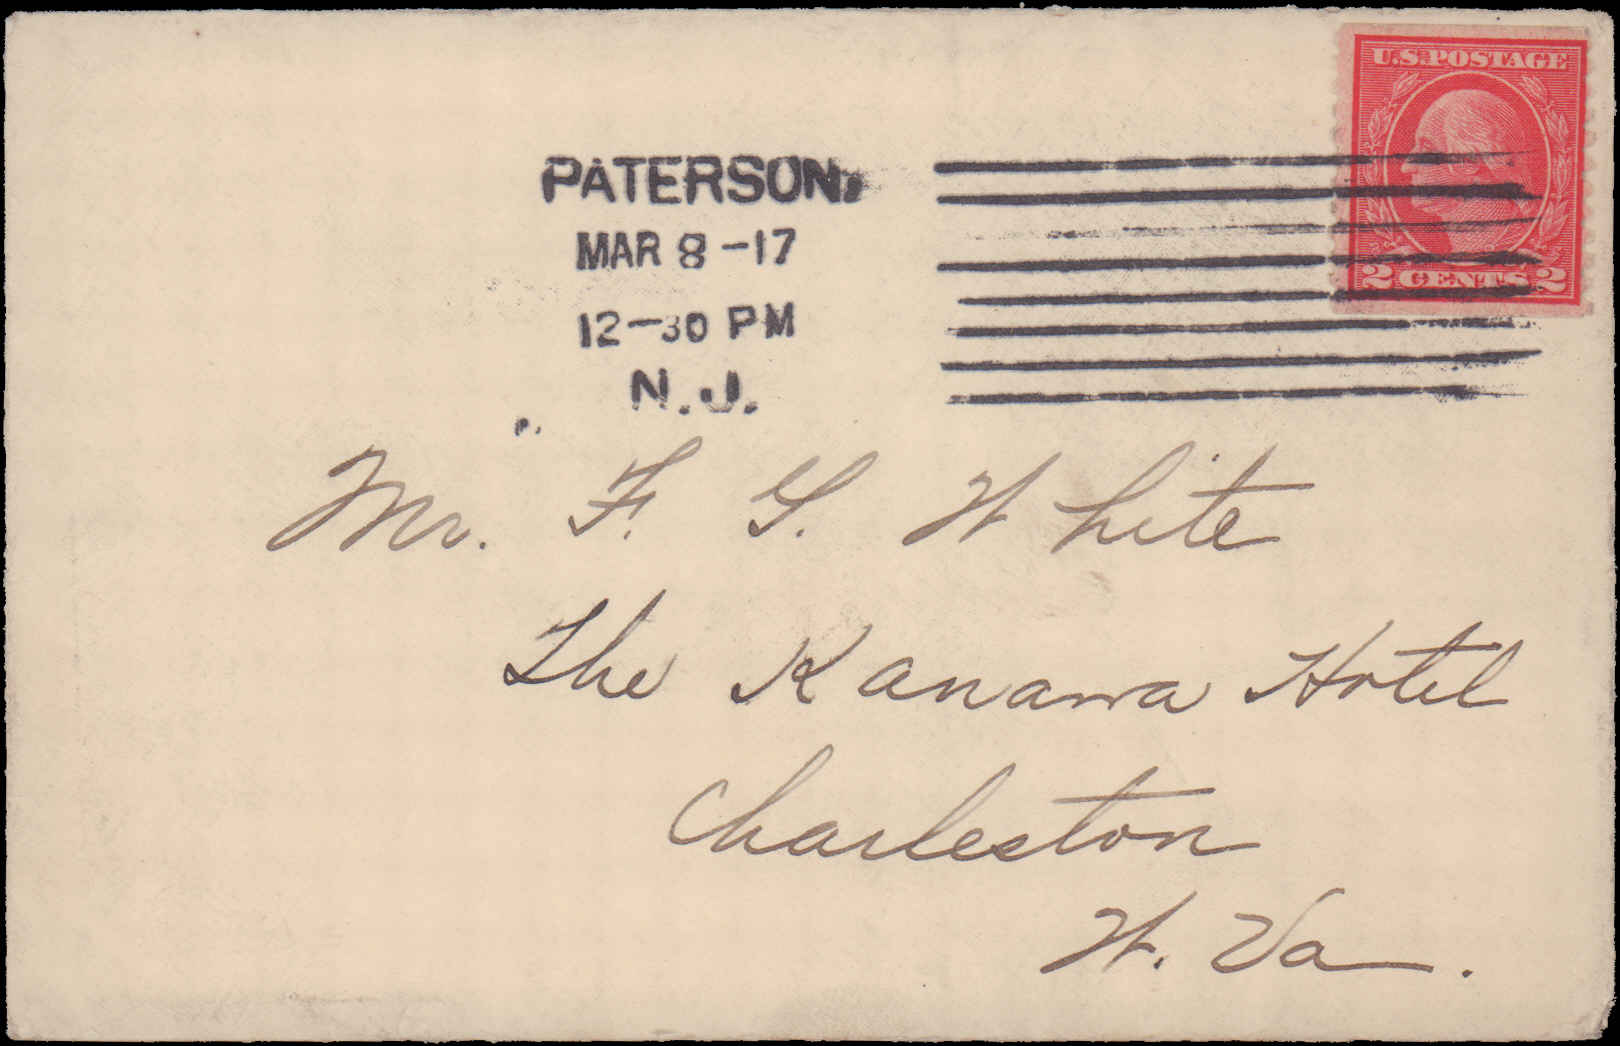 U.S. POSTAGE
2 CENTS 2
PATERSON,
MAR 8 -17
12-30 PM
N.J.
Mr. F. G. White
The Kanawa Hotel
Charleston
W. Va.